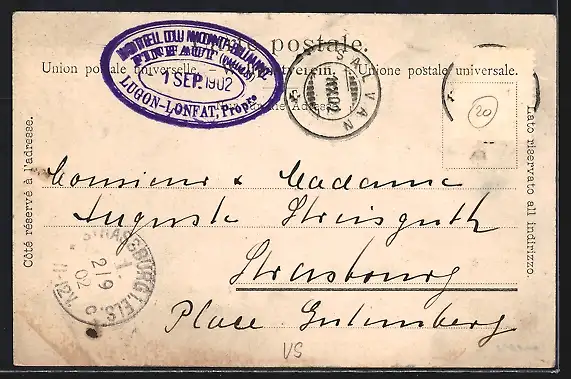 postale.
HOTEL DU MONT-BLANC
FINHAUT (Valais)
1 SEP. 1902
LUGON-LONFAT, Propre
SALVAN
Union postale universelle. Weltpostverein. Unione postale universale.
Côté réservé à l'adresse.
Lato riservato all indirizzo.
20
Monsieur & Madame
Auguste Streisguth
Strasbourg
Place Gutemberg
STRASSBURG (ELS.)
2/9
02
11-12V
VS